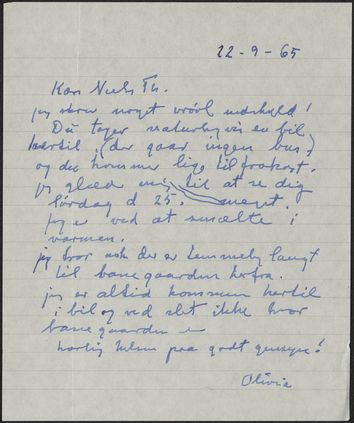 22-9-65
Kære Niels Th.
jeg skrev noget vrøvl undskyld!
Du tager naturligvis en bil
hertil, (der gaar ingen bus)
og du kommer lige til frokost.
jeg glæder mig til at se dig
lørdag d 25. meget.
jeg er ved at smælte i
varmen.
jeg tror nok der er temmelig langt
til banegaarden herfra.
jeg er altid kommen hertil
i bil og ved slet ikke hvor
banegaarden er
hilsen paa godt gensyn!
Olivia